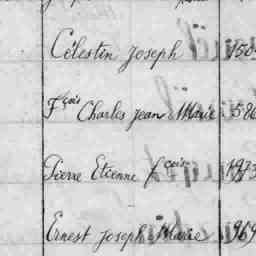 Célestin Joseph
Fçois Charles Jean Marie 586
Pierre Etienne fçois
Ernest Joseph Marie 969